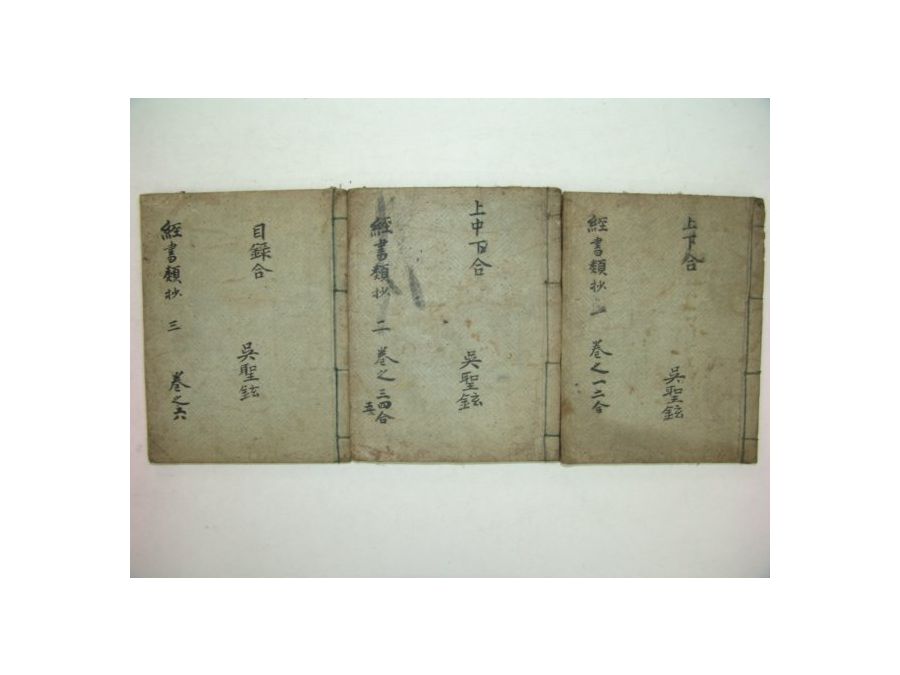 上下合
吳聖鉉
經書類抄 一 卷之一二合
上中下合
吳聖鉉
經書類抄 二 卷之三四合
五
目錄合
吳聖鉉
經書類抄 三 卷之六